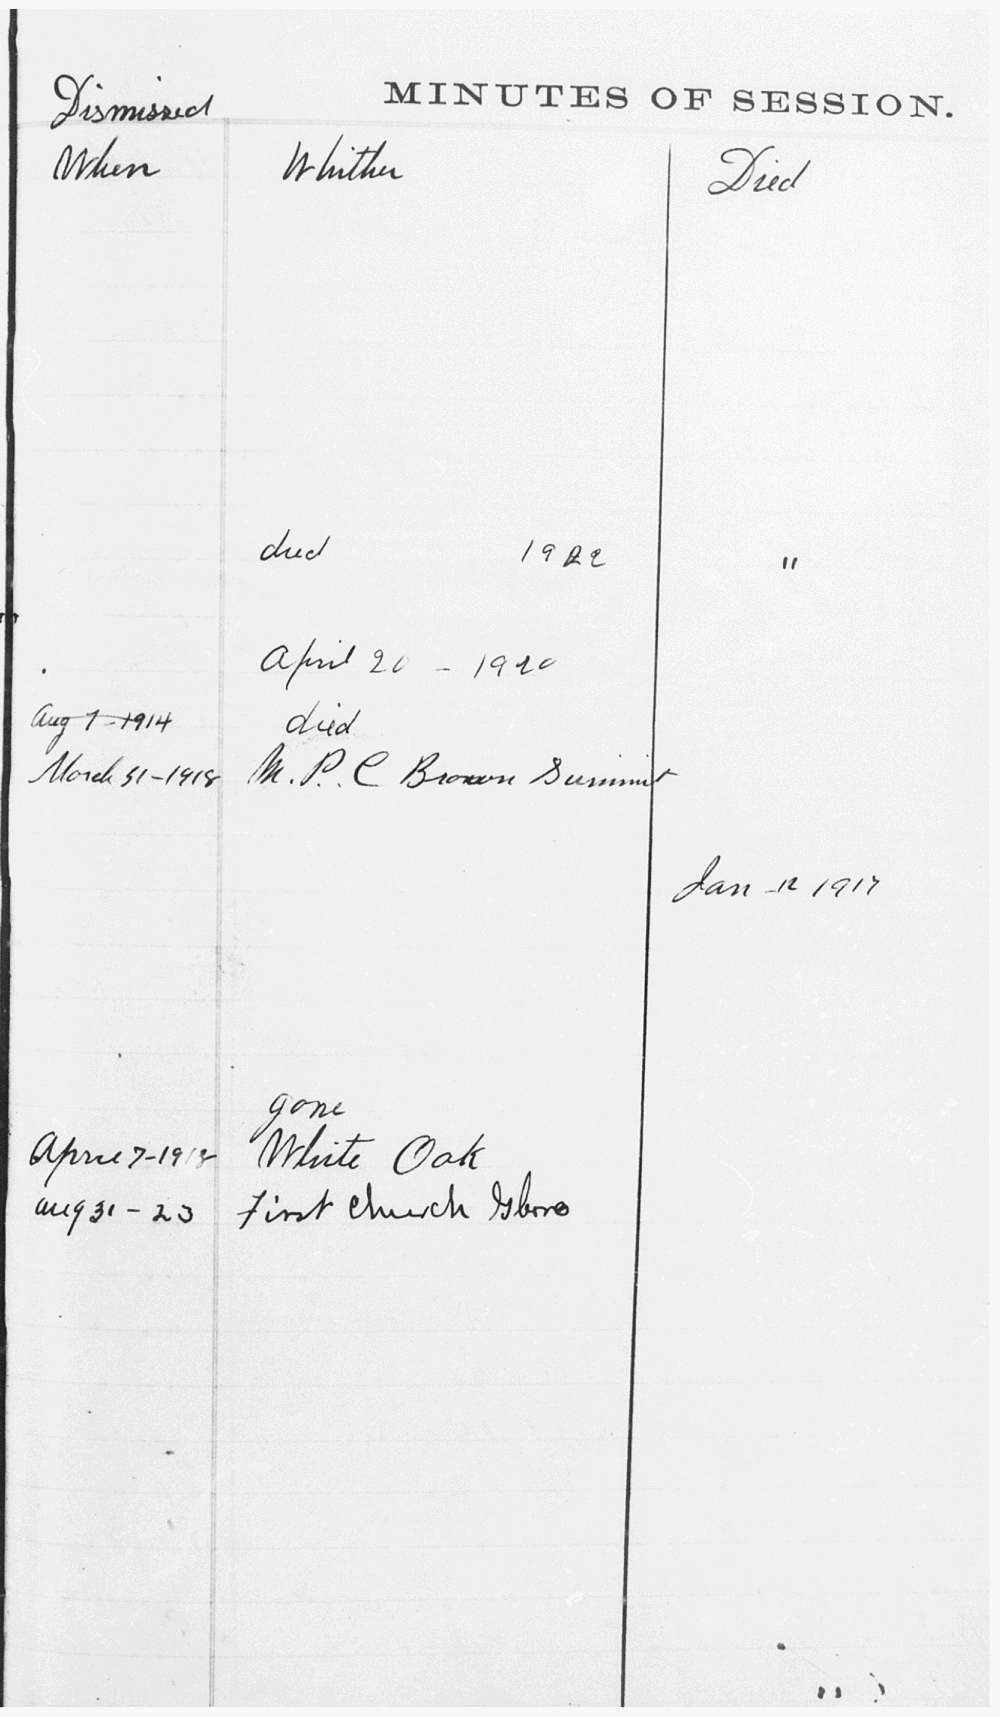 Dismissed MINUTES OF SESSION.
When Whither Died
died 1922 "
April 20 - 1920
Aug 7-1914 died
March 31-1918 M. P. C Brown Summit
Jan -12 1917
gone
April 7-1918 White Oak
Aug 31 - 23 First Church Gboro